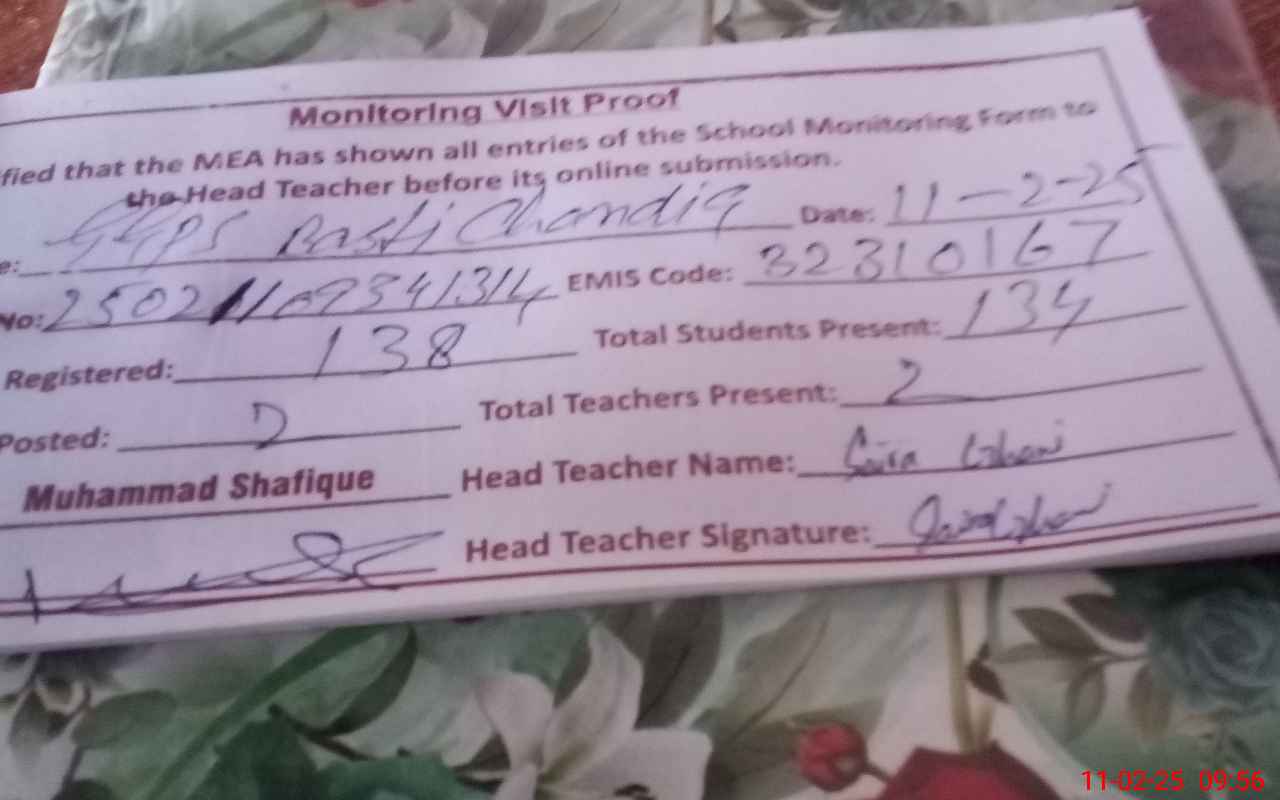 Monitoring Visit Proof
fied that the MEA has shown all entries of the School Monitoring Form to
the Head Teacher before its online submission.
e: GGPS Basti Chandia Date: 11-2-25
No: EMIS Code: 32310167
Registered: 138 Total Students Present: 134
Posted: 2 Total Teachers Present: 2
Muhammad Shafique Head Teacher Name: Saira Ghani
Head Teacher Signature:
11-02-25 09:56